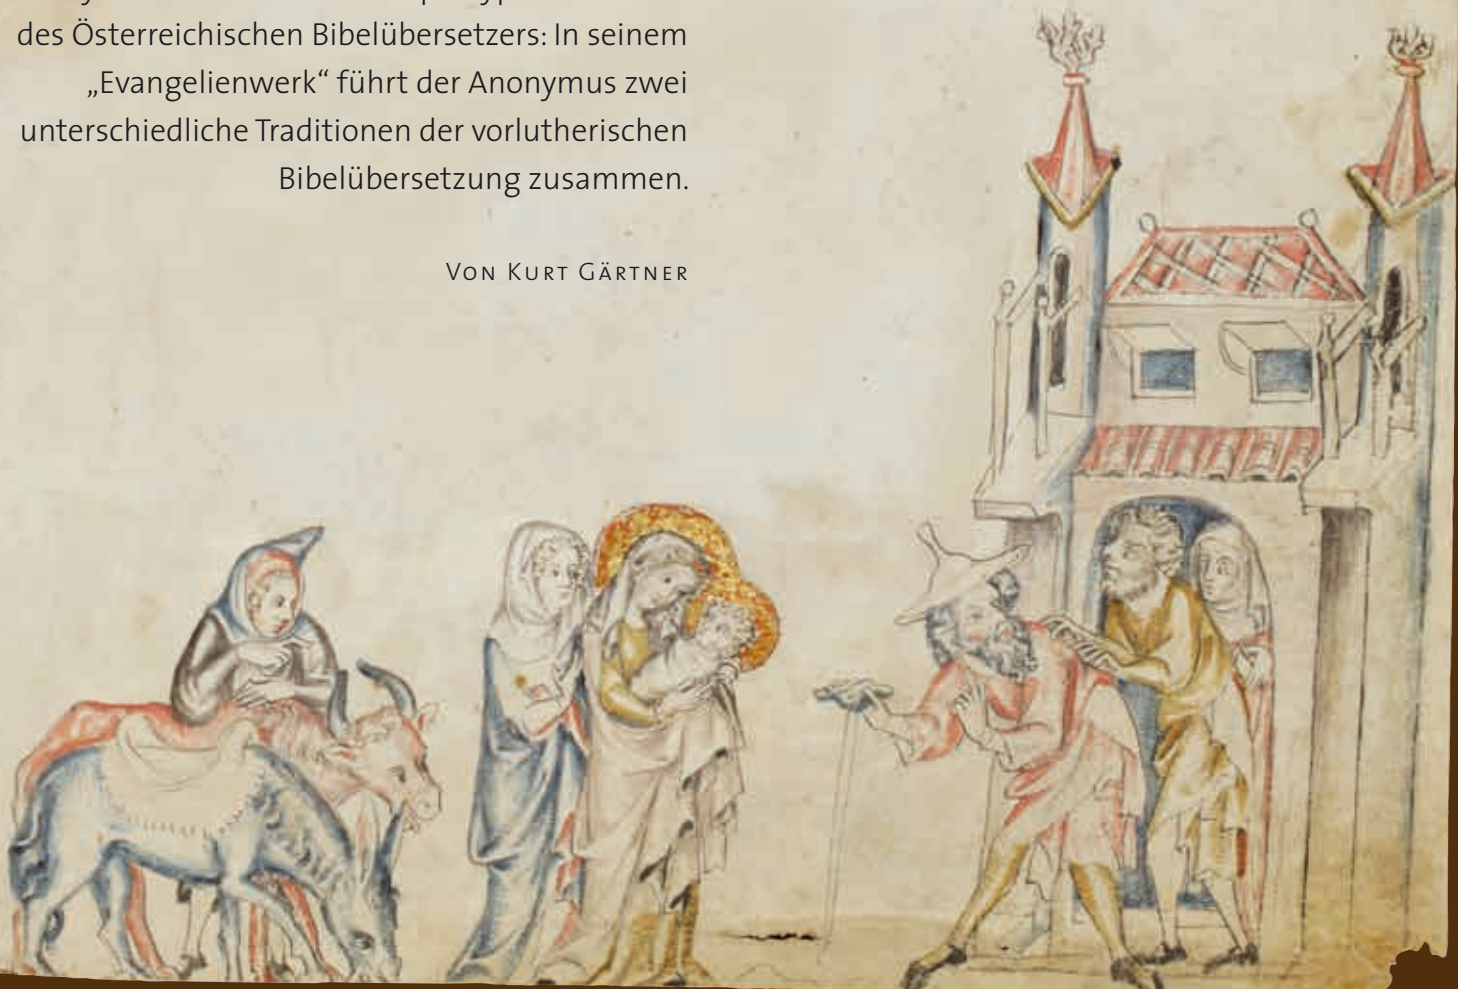 des Österreichischen Bibelübersetzers: In seinem
„Evangelienwerk“ führt der Anonymus zwei
unterschiedliche Traditionen der vorlutherischen
Bibelübersetzung zusammen.
Von Kurt Gärtner